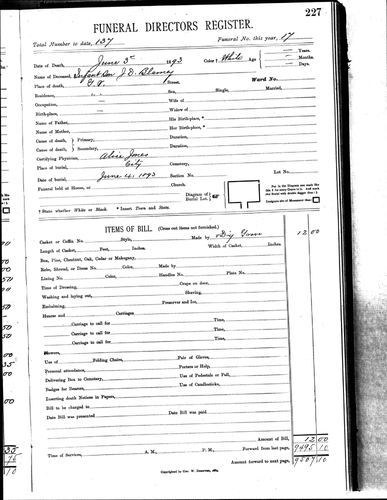 227
FUNERAL DIRECTORS REGISTER.
Total Number to date, 137 Funeral No. this year, 17
Date of Death, June 3rd 1893 Color † White Age — Years.
— Months.
— Days.
Name of Deceased, Infant son J. D.
Place of death, Street. Ward No.
Residence, Sex, Single, Married,
Occupation, Wife of
Birth-place, Widow of
Name of Father, His Birth-place, *
Name of Mother, Her Birth-place, *
Cause of death, Primary, Duration,
Cause of death, Secondary, Duration,
Certifying Physician, Alice Jones
Place of burial, City Cemetery,
Date of burial, June 4, 1893 Section No. Lot No.
Funeral held at House, or Church.
Diagram of Burial Lot.
† State whether White or Black. * Insert Town and State.
ITEMS OF BILL. (Cross out items not furnished.)
Casket or Coffin No. Style, Made by 12 00
Length of Casket, Feet, Inches. Width of Casket, Inches.
Box, Pine, Chestnut, Oak, Cedar or Mahogany,
Robe, Shroud, or Dress No. Color, Made by
Lining No. Color, Handles No. Plate No.
Time of Dressing, Crape on door,
Washing and laying out, Shaving,
Embalming, Preserver and Ice,
Hearse and Carriages
Carriage to call for Time,
Carriage to call for Time,
Carriage to call for Time,
Carriage to call for Time,
Flowers,
Use of Folding Chairs, Pair of Gloves,
Personal attendance, Porters or Help,
Delivering Box to Cemetery, Use of Pedestals or Pall,
Badges for Bearers, Use of Candlesticks,
Inserting death Notices in Papers,
Bill to be charged to
Date Bill was presented Date Bill was paid
Amount of Bill, 12 00
Forward from last page, 9495 10
Time of Services, A. M., P. M., Amount forward to next page, 9507 10